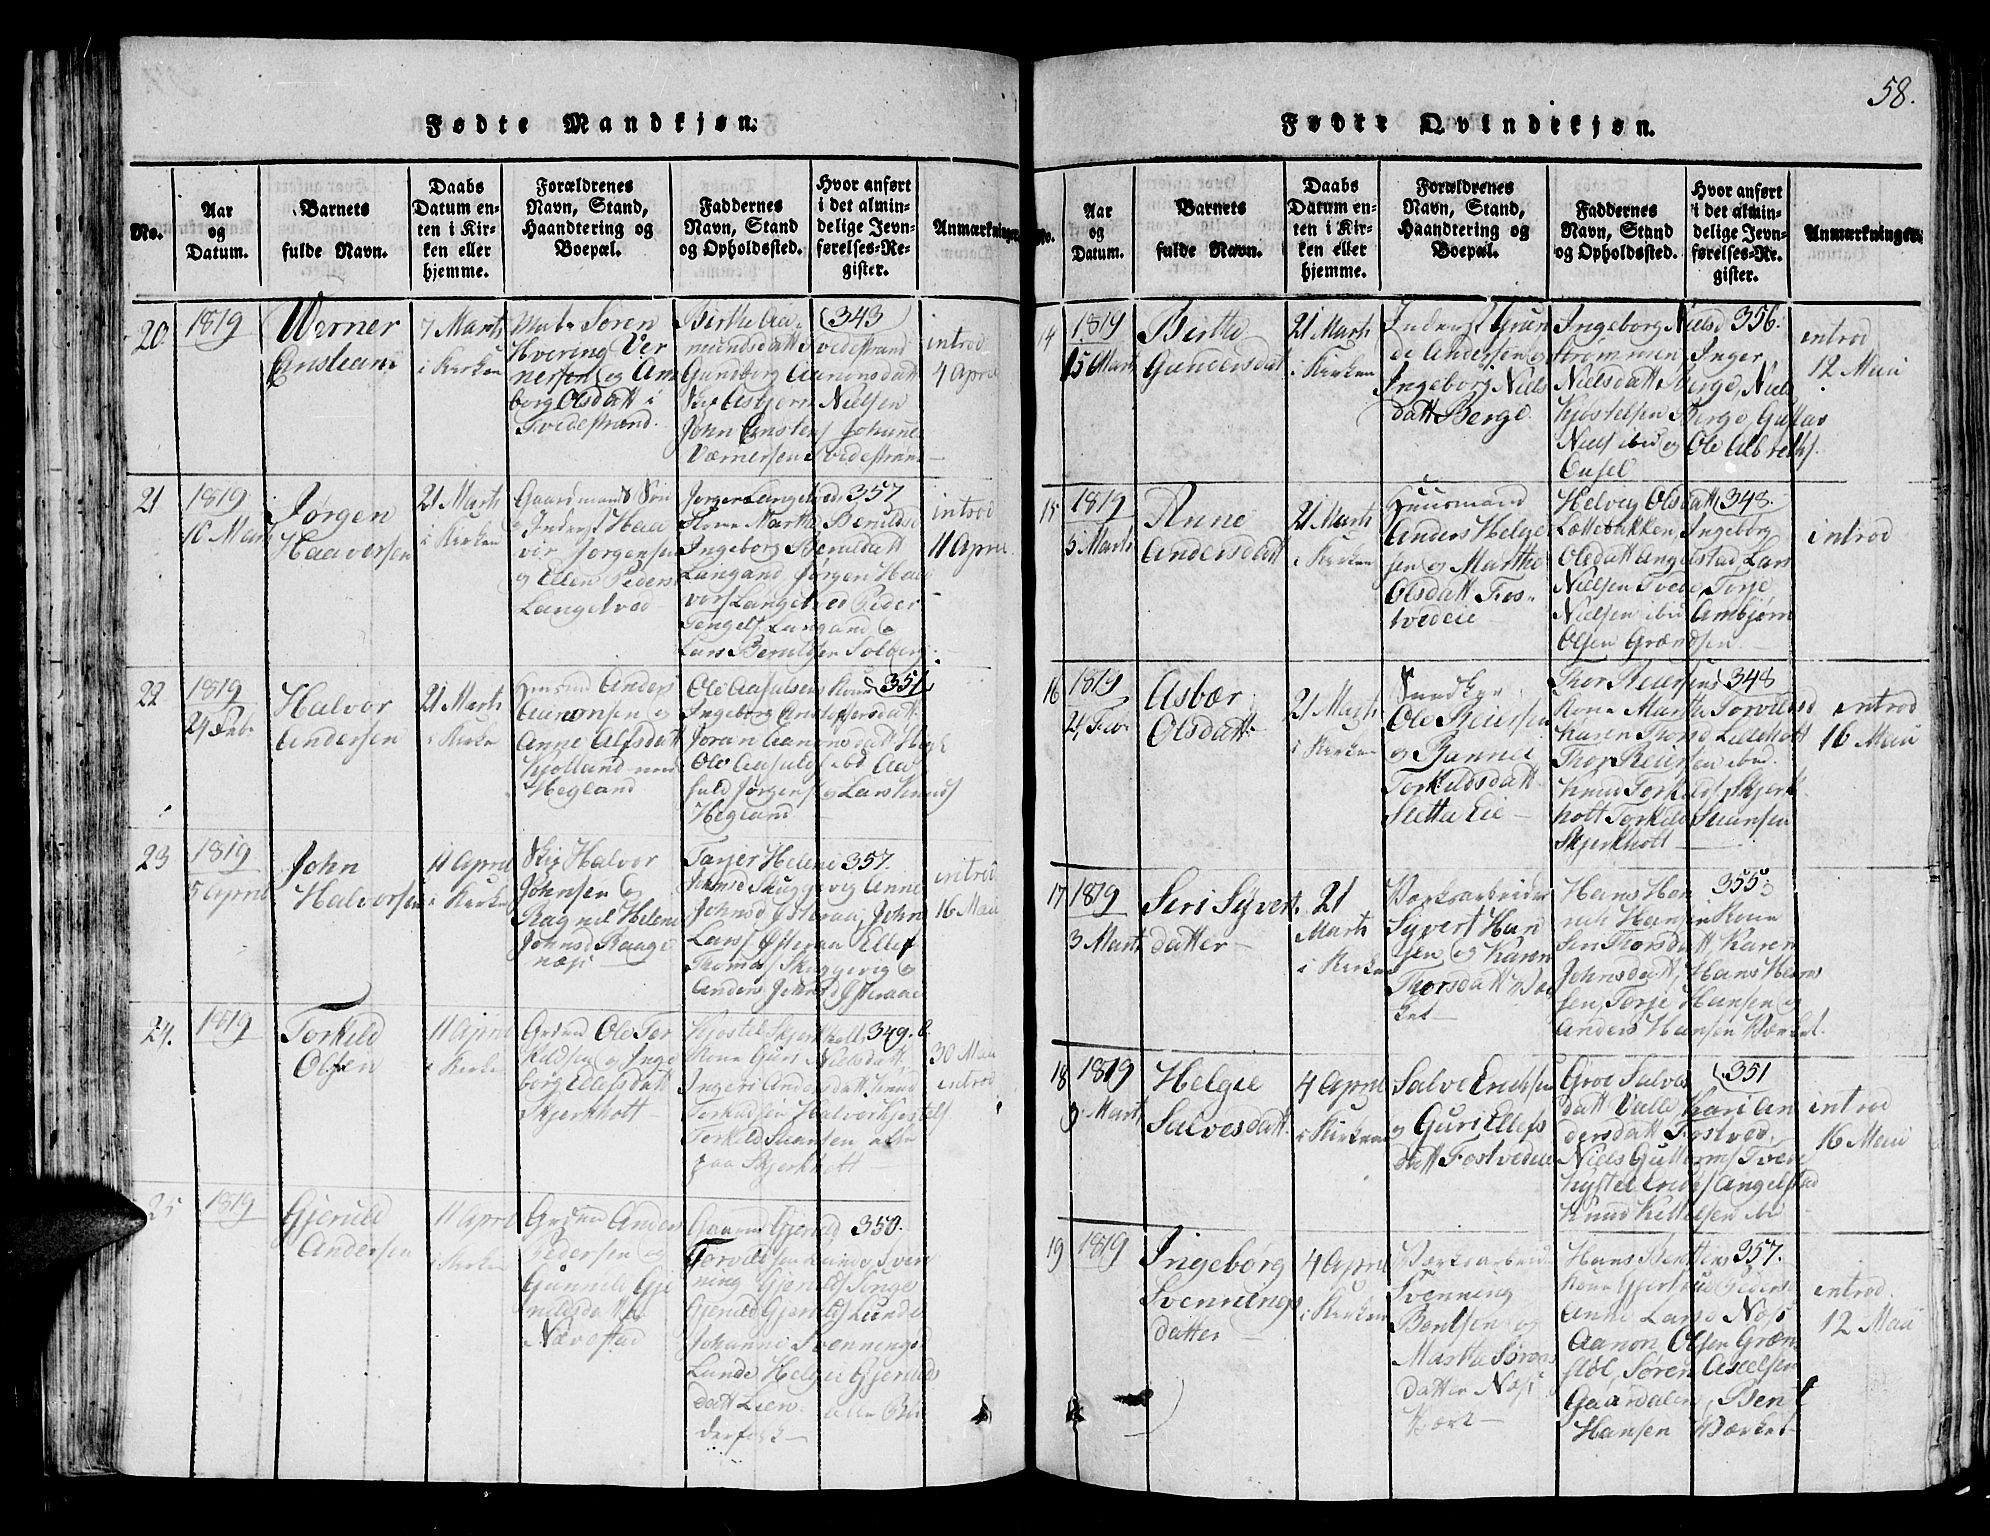 58.
Fødte Mandkjøn.
No.
Aar
og
Datum.
Barnets
fulde Navn.
Daabs
Datum en-
ten i Kir-
ken eller
hjemme.
Forældrenes
Navn, Stand,
Haandtering og
Boepæl.
Faddernes
Navn, Stand
og Opholdssted.
Hvor anført
i det almin-
delige Jevn-
førelses-Re-
gister.
Anmærkninger.
20
1819
Werner
7 Marts
i Kirken
Søren
Hvering Ver
nersen og An
borg Olsdatt i
Tvedestrand.
Birthe Aa
mundsdatt Tvedestrand
Gunborg Aanonsdatt
Asbjørn Nielsen
Værnersen Tvedestrand
343
introd
4 April
21
1819
10 Marts
Jørgen
Haavorsen
21 Marts
i Kirken
Gaardmand
Haa
vor Jørgensen
og Ellen Peders
Langelved
Jørgen Langelved
Kone Marthe Berulds
Ingeborg Beruldatt
Langand Jørgen Haa
vors Langelved Peder
Tengels Langand &
Lars Beruldsen Solberg
357
introd
11 April.
22
1819
24 Feb.
Halvor
Andersen
21 Marts
i Kirke
Anders
Aanonsen og
Anne Alfsdatt
Hegland
Ole Aasulsens Kone
Ingeborg
Joran Aanonsdatt Hegl
Ole Aasulds ibd Aa
suld Jørgens & Lars Knuds
Hegland
351
23
1819
5 April
John
Halvorsen
11 April
i Kirken
Halvor
Johnsen &
Ragnil Helene
Johnsd Raage
næs
Tarjer Helene
Johnsd Skuggevig Anne
Johnsd Østeraa, John
Lars Østeraa Ellef
Thomas Skuggevig &
Anders Johnsd Østeraa
357.
introd
16 Mai
24.
1819
Torkild
Olsen
11 April
i Kirke
Ole Tor
kildsen & Inge
borg Ellefsdatt
Skjerkholt
Kjøstel Skjerkholt
Kone Guri Nielsdatt,
Ingeri Andersdatt Knud
Torkildsen Halvor Kjøstels
Torkild Suansen alle
paa Skjerkholt
349. b.
30 Mai
introd
25
1819
Gjeruld
Andersen
11 April
i Kirken
Anders
Pedersen og
Gunnild Gje
ruldsdatt
Nævestad
Gjeruld
Torvildsen Lunde Sven
ning Gjerulds Songe
Gjeruld Gjerulds Lunde
Johanne Svennings
Lunde Helgie Gjerulds
datt Lien
350.
Fødte Qvindekjøn.
No.
Aar
og
Datum.
Barnets
fulde Navn.
Daabs
Datum en-
ten i Kir-
ken eller
hjemme.
Forældrenes
Navn, Stand,
Haandtering og
Boepæl.
Faddernes
Navn, Stand
og Opholdssted.
Hvor anført
i det almin-
delige Jevn-
førelses-Re-
gister.
Anmærkninger.
14
1819
15 Marts
Birthe
Gundersdat
21 Marts
i Kirken
Inderst Gun
de Andersen og
Ingeborg Niels
datt Berge.
Ingeborg Nielsd
Strømmen Inger
Nielsdatt Berge, Niels
Kjøstelsen Berge Guttor
Niels ibid og Ole Albreths.
356.
introd
12 Mai
15
1819
5 Marts
Anne
Andersdatt
21 Marts
i Kirken
Huusmand
Anders Helge
sen og Marthe
Olsdatt Fos-
tvedeie
Helvig Olsdatt
Lættebakken, Ingeborg
Olsdatt Angelstad Lars
Nielsen Tvede, Torje
Nielsen ibid Ambjørn
Olsen Grændsen
348.
introd
16
1819
24 Feb
Asbær
Olsdatt
21 Marts
i Kirken
Ole Reiersen
og Gunnil
Torkildsdatt
Sletta Eie
Thor Reiersens
Kone Marthe Torvildsd
Karen Thorsd Lilleholt
Thor Reiersen ibid.
Knud Torkilds Skjerk
holt Torkild Suansen
Skjerkholt
348
introd
16 Mai
17
1819
3 Marts
Siri Syvert
datter
21
Marts
i Kirken
Værksarbeider
Syvert Han
sen og Karen
Thorsdatt Vær
ket
Hans Han
Hansens Kone
Siri Thorsdatt Karen
Johnsdatt, Hans Hans
sen, Torje Hansen og
Anders Hansen Værket.
355
18
1819
9 Marts
Helgie
Salvesdatt
4 April
i Kirken
Salve Erichsen
& Guri Ellefs
datt Fostvedeie
Groe Salves
datt Valle Kari An
dersdatt Fostved,
Niels Guttorms Tvede
Kjøstel Erichs Angelstad
Knud Kittelsen ibid
351
introd
16 Mai
19
1819
Ingeborg
Svennings
datter
4 April
i Kirken
Værksarbeid
Svenning
Bentsen og
Marthe Sørens
datter Næs
Værk
Hans
Kone Gjertrud Peders
Anne Larsd Næs
Aanon Olsen Græn
støl, Søren Axelsen
Gaardalen, Bent
Hansen Værket
357.
introd.
12 Mai